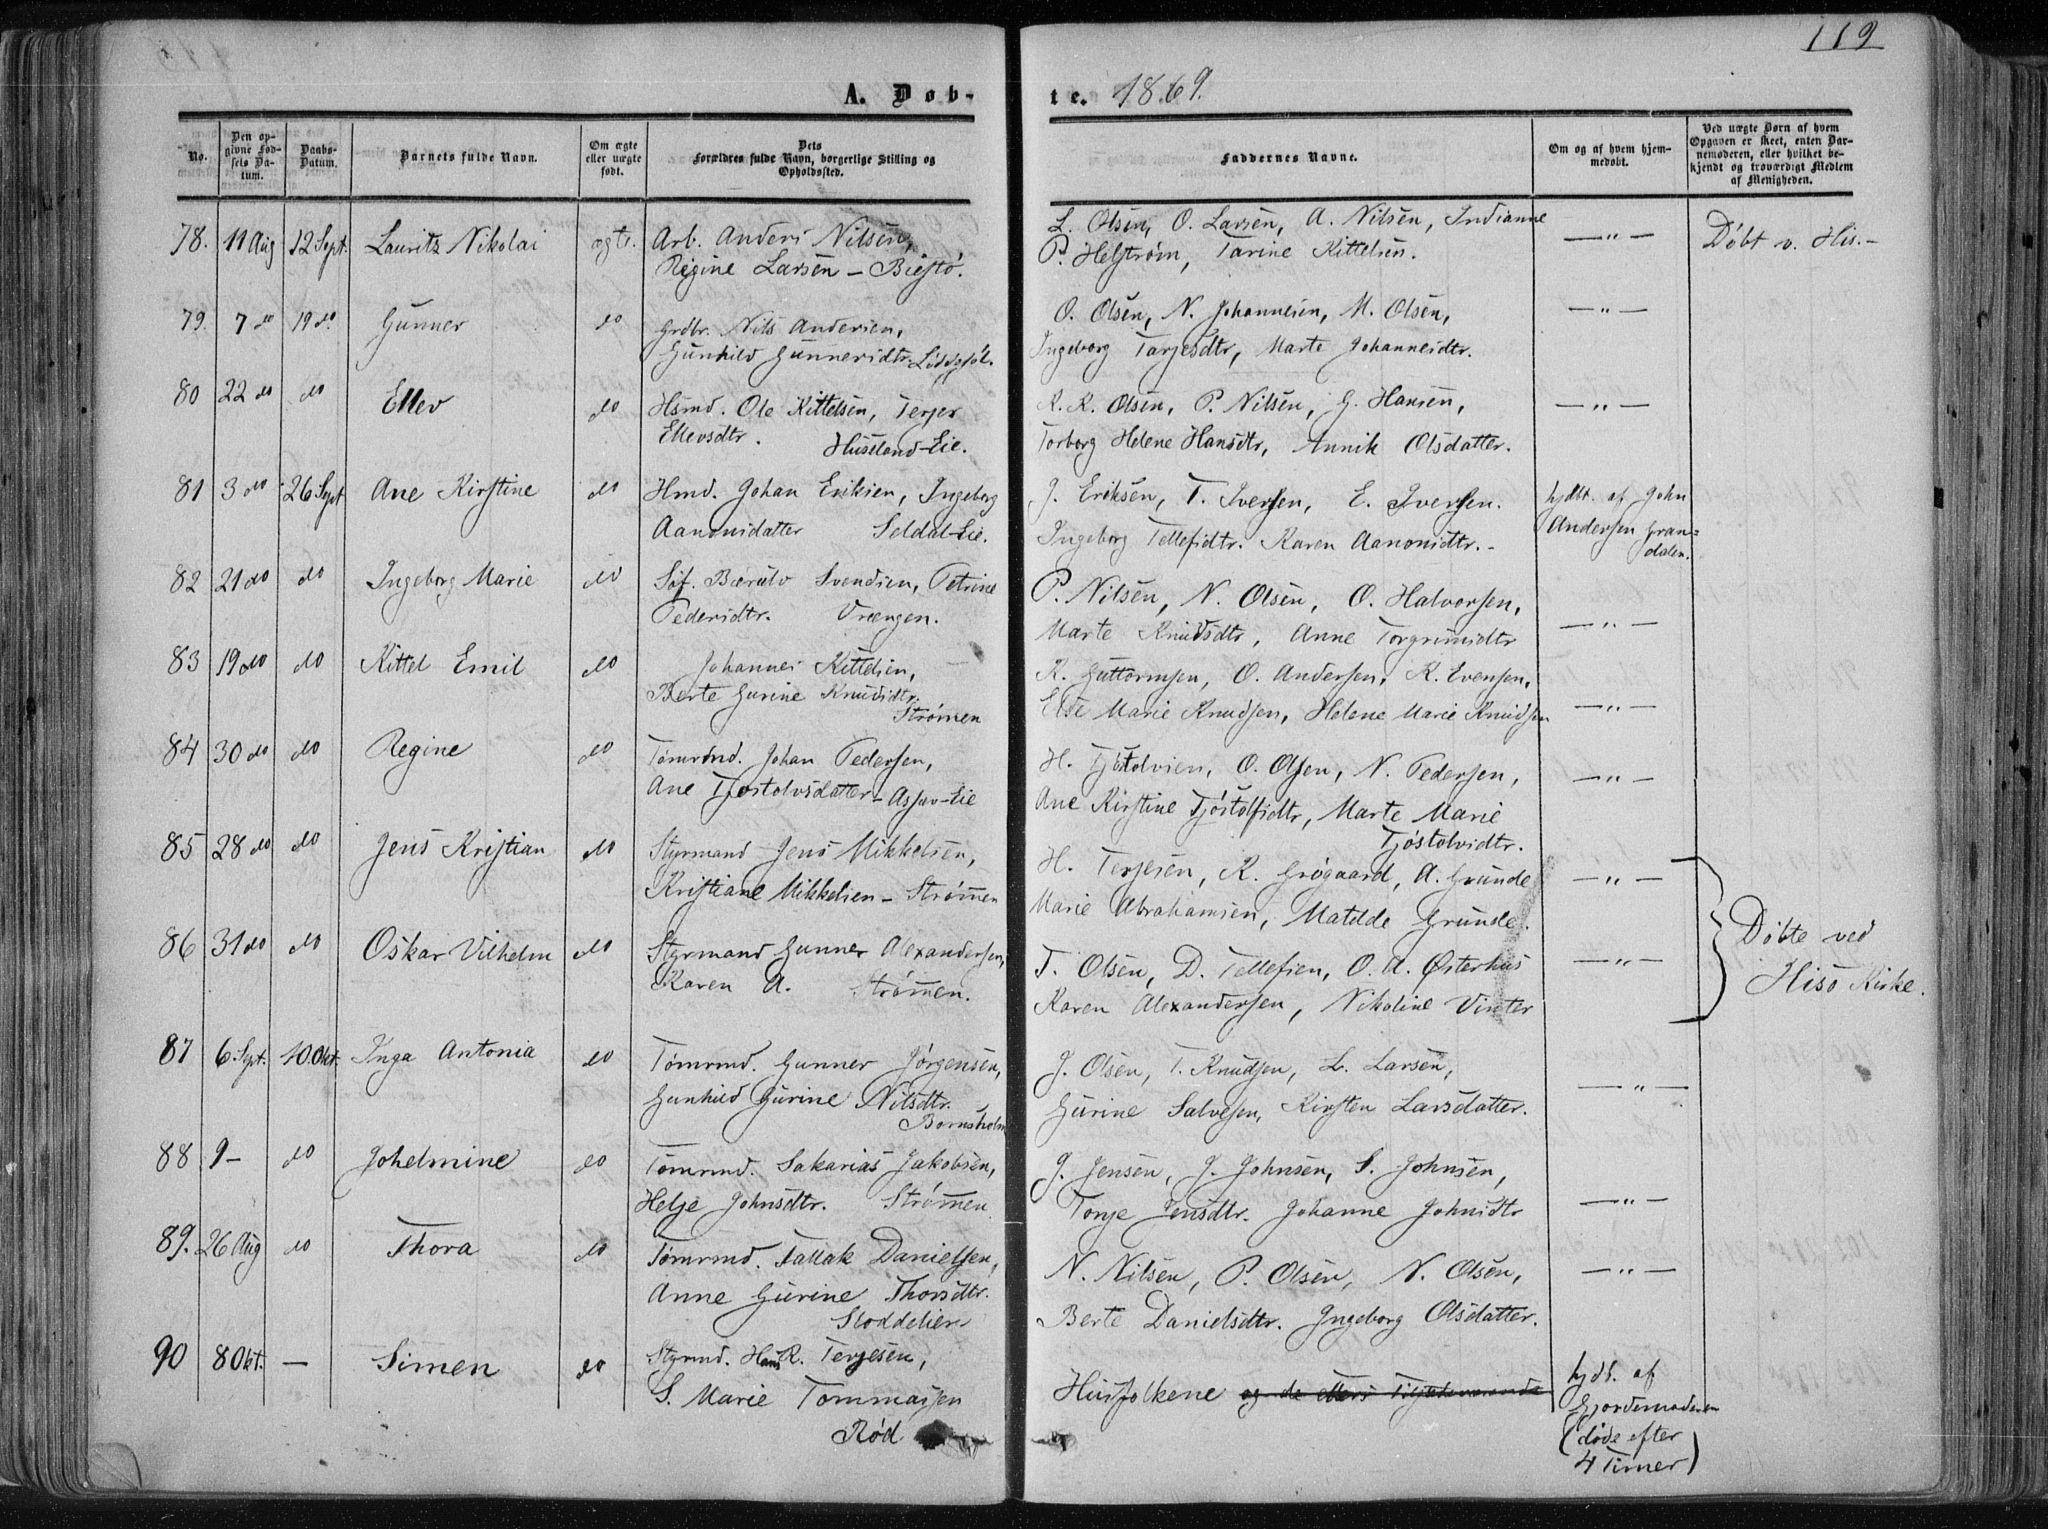 119
A. Døb-
te. 1869.
No.
Den opgivne Fødsels Datum.
Daabs-Datum.
Barnets fulde Navn.
Om ægte eller uægte født.
Dets Forældres fulde Navn, borgerlige Stilling og Opholdssted.
Faddernes Navne.
Om og af hvem hjemmedøbt.
Ved uægte Børn af hvem Opgaven er skeet, enten Barnemoderen, eller hvilket bekjendt og troværdigt Medlem af Menigheden.
78. 11 Aug 12 Sept. Lauritz Nikolai ægte. Arb. Anders Nilsen, L. Olsen, O. Larsen, A. Nilsen, Indianne —"— Døbt v. His.-
Regine Larsen - Biestø. P. Helstrøm, Tarine Kittelsen.
79. 7 do 19 do. Gunner do Grdbr. Nils Andersen, O. Olsen, N. Johannesen, M. Olsen, —"—
Gunhild Gunnersdtr. Ingeborg Tarjesdtr, Marte Johannesdtr.
80 22 do do Ellev do Hsmd. Ole Kittelsen, Terjer K. K. Olsen, P. Nilsen, G. Hansen, —"—
Ellevsdtr. Huseland-Eie. Torborg Helene Hansdtr, Annik Olsdatter.
81 3 do 26 Sept Ane Kirstine do Hmd. Johan Eriksen, Ingeborg J. Eriksen, T. Iversen, E. Iversen. hjdbt. af John
Aanonsdatter Seldal-Eie. Ingeborg Tellefsdtr. Karen Aanonsdtr.- Andersen Gran=
dalen.
82 21 do do Ingeborg Marie do Søf. Bærulv Svendsen, Petrine P. Nilsen, N. Olsen, O. Halvorsen,
Pedersdtr. Vrængen. Marte Knudsdtr, Anne Torgrimsdtr —"—
83 19 do do Kittel Emil do Johannes Kittelsen, K. Guttormsen, O. Andersen, K. Evensen,
Berte Gurine Knudsdtr. Else Marie Knudsen, Helene Marie Knudsen —"—
Strømen
84 30 do do Regine do Tømrmd. Johan Pedersen, H. Tjøstolvsen, O. Olsen, N. Pedersen, —"—
Ane Tjøstolvsdatter - Assav-Eie Ane Kirstine Tjøstolfsdtr, Marte Marie
Tjøstolvsdtr.
85 28 do do Jens Kristian do Styrmand Jens Mikkelsen, H. Terjesen, K. Grøgaard, A. Grunde —"—
Kristiane Mikkelsen - Strømen Marie Abrahamsen, Matilde Grunde.
86 31 do do Oskar Vilhelm do Styrmand Gunner Alexandersen, T. Olsen, D. Tellefsen, O. A. Østerhus —"— Døbte ved
Karen A. Strømen. Karen Alexandersen, Nikoline Vinter Hisø Kirke.
87 6 Sept. 10 Okt. Inga Antonia do Tømrmd. Gunner Jørgensen, J. Olsen, T. Knudsen, L. Larsen,
Gunhild Gurine Nilsdtr. Gurine Salvesen, Kirsten Larsdatter. —"—
Bornsholm
88 9 - do Johelmine do Tømrmd. Sakarias Jakobsen, J. Jensen, J. Johnsen, S. Johnsen,
Helje Johnsdtr. Strømen Tonje Jensdtr. Johanne Johnsdtr —"—
89. 26 Aug do Thora do Tømrmd. Tallak Danielsen, N. Nilsen, P. Olsen, N. Olsen, —"—
Anne Gurine Thorsdtr. Berte Danielsdtr. Ingeborg Olsdatter.
90 8 Okt. — Simen do Styrmd. Hans R. Terjesen, Husfolkene hjdt. af
S. Marie Tommassen Gjordemoderen
Rød (døde efter
4 Timer)